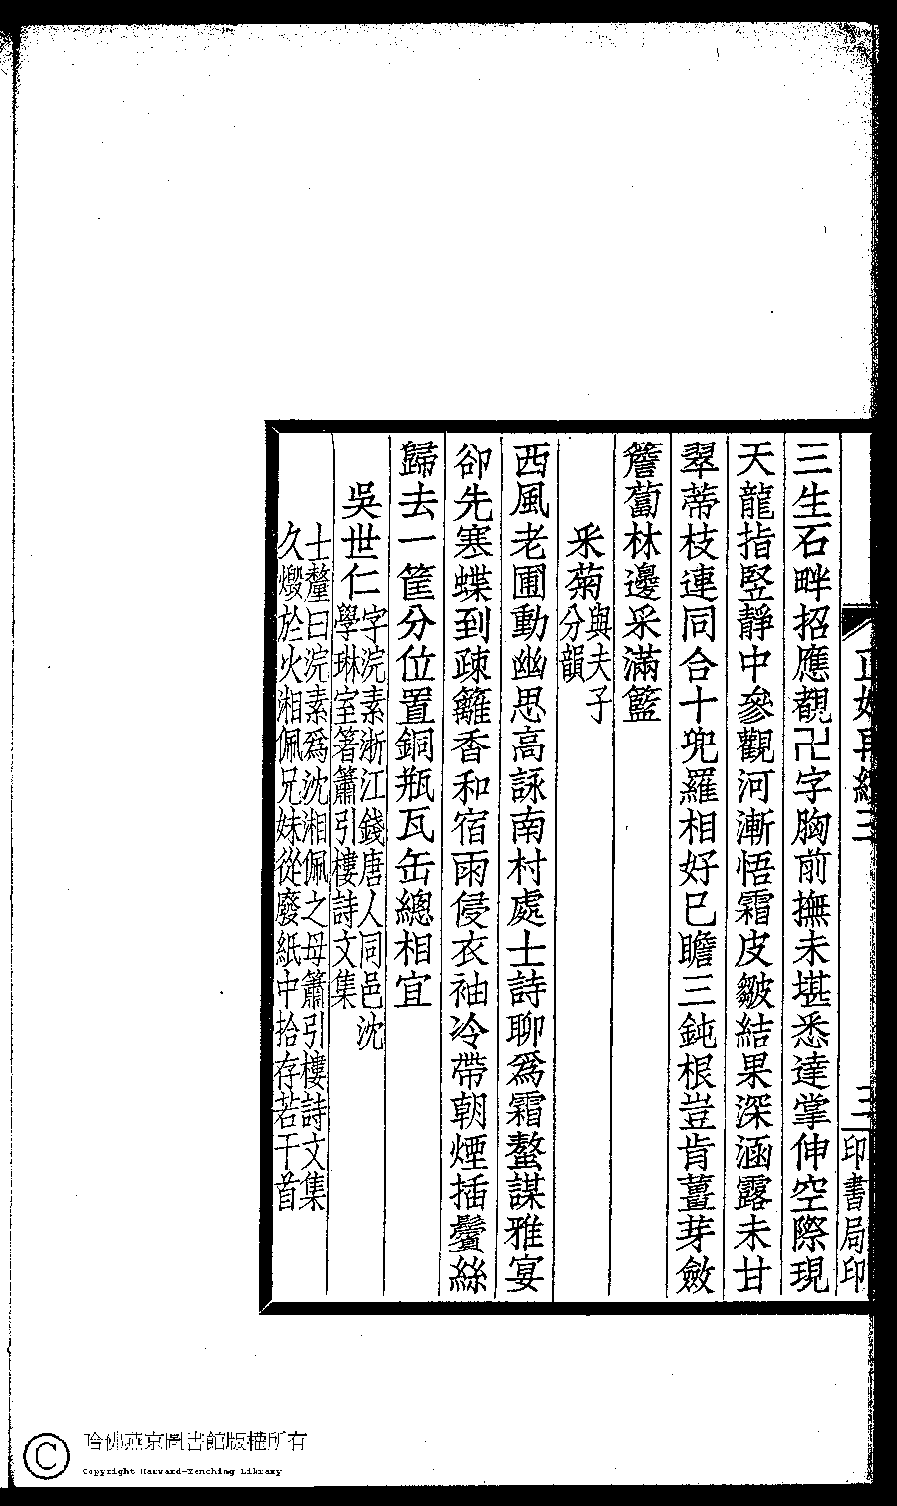 三生石畔招應覩卍字胸前撫未堪悉達掌伸空際現
天龍指竪靜中參觀河漸悟霜皮皺結果深涵露未甘
翠蒂枝連同合十兜羅相好已瞻三鈍根豈肯薑芽斂
簷蔔林邊采滿籃
采菊與夫子
分韻
西風老圃動幽思高詠南村處士詩聊爲霜螯謀雅宴
卻先寒蝶到疎籬香和宿雨侵衣袖冷帶朝煙插鬢絲
歸去一筐分位置銅瓶瓦缶總相宜
吳世仁字浣素浙江錢唐人同邑沈
學琳室箸簫引樓詩文集
士釐曰浣素爲沈湘佩之母簫引樓詩文集
久燬於火湘佩兄妹從廢紙中拾存若干首
正始再續三
三
印書局印
哈佛燕京圖書館版權所有
Copyright Harvard-Yenching Library